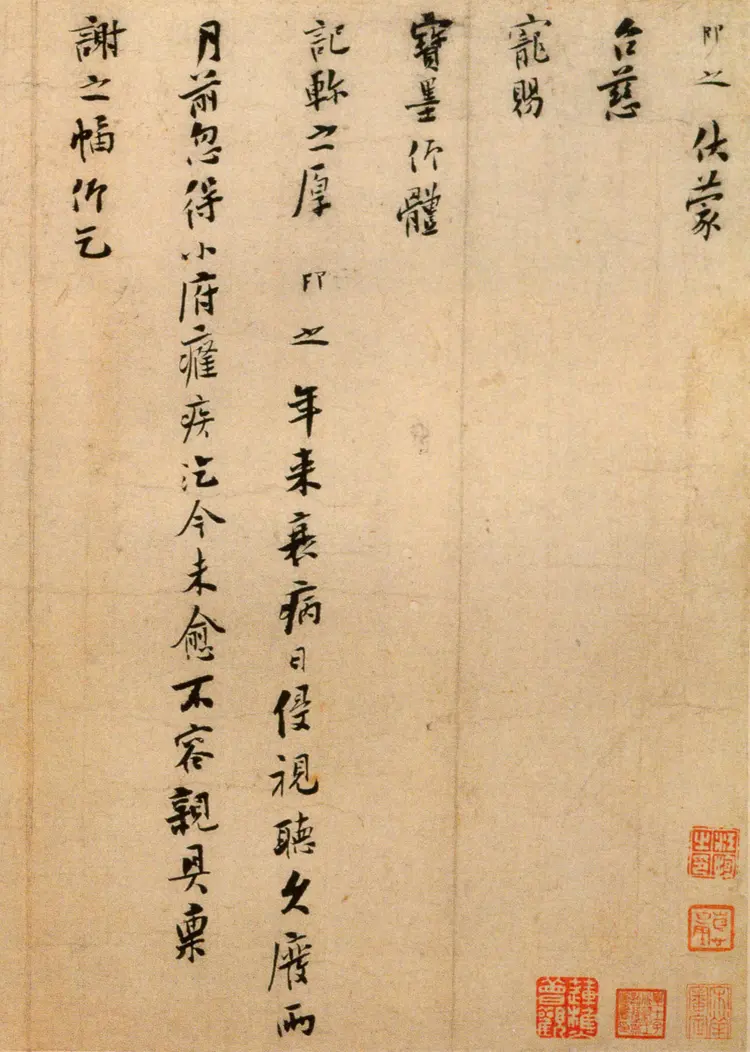 即之伏蒙
台慈
寵賜
寶墨仰體
記軫之厚 即之年来衰病日侵視聽久廢兩
月前忽得小府癰疾迄今未愈不容親具稟
謝之幅仰乞